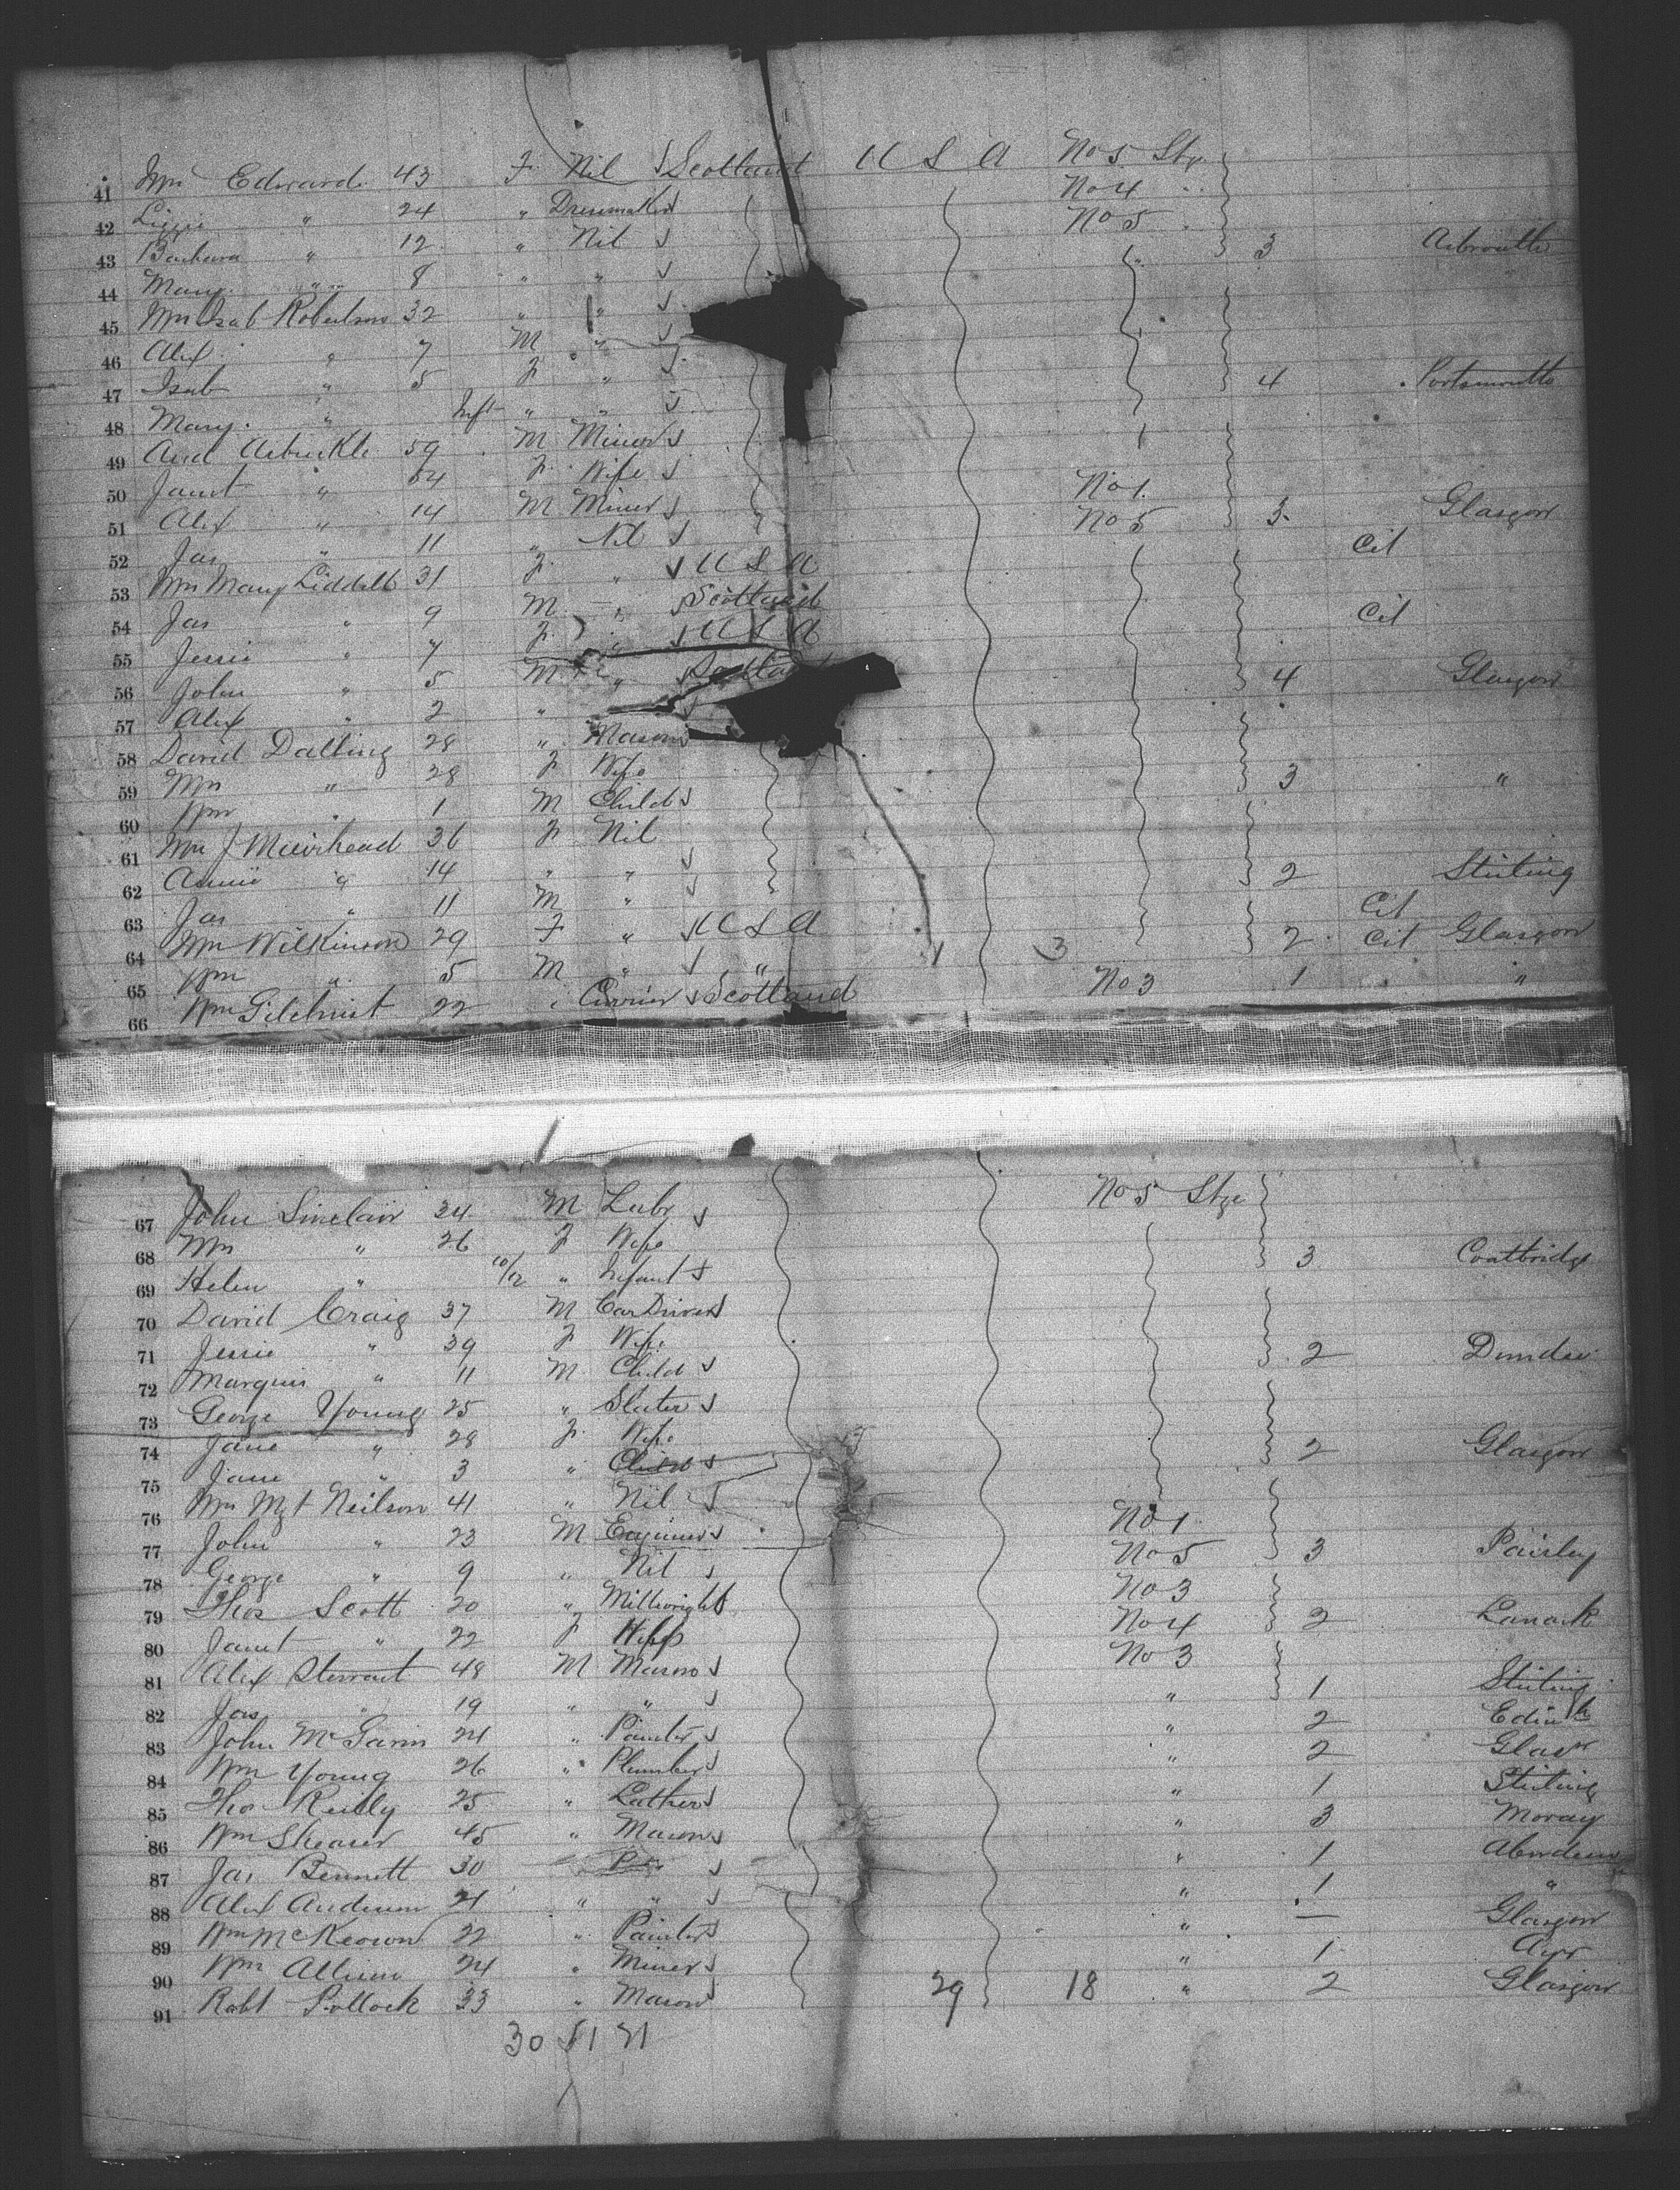 41 Mrs Edward 43 F. Nil Scotland U S A No 5 Stge
42 Lizzie " 24 " Dressmaker No 4 "
43 Barbara " 12 " Nil No 5 3 Arbroath
44 Mary " 8 " "
45 Mrs Isab Robertson 32 " "
46 Alex " 7 M "
47 Isab " 5 F " 4 Portsmouth
48 Mary " Inft " "
49 And Arbuckle 59 M Miner
50 Janet " 54 F Wife No 1
51 Alex " 14 M Miner No 5 3 Glasgow
52 Jas " 11 " Nil Cit
53 Mrs Mary Liddell 31 F " U S A
54 Jas " 9 M " Scotland Cit
55 Jessie " 7 F " U S A
56 John " 5 M " Scotland 4 Glasgow
57 Alex " 2 "
58 David Dalling 28 " Mason
59 Mrs " 28 F Wife 3 "
60 Wm " 1 M Child
61 Mrs J Muirhead 36 F Nil
62 Annie " 14 " " 2 Stirling
63 Jas " 11 M " Cit
64 Mrs Wilkinson 29 F " U S A 3 2 Cit Glasgow
65 Wm " 5 M " " No 3 1 "
66 Wm Gilchrist 22 " Currier Scotland
67 John Sinclair 34 M Labr No 5 Stge
68 Mrs " 26 F Wife 3 Coatbridge
69 Helen " 10/12 " Infant
70 David Craig 37 M Car Driver
71 Jessie " 39 F Wife 2 Dundee
72 Marquis " 11 M Child
73 George Young 25 " Slater
74 Jane " 28 F Wife 2 Glasgow
75 Jane " 3 " Child
76 Mrs Mgt Neilson 41 " Nil No 1
77 John " 23 M Engineer No 5 3 Paisley
78 George " 9 " Nil No 3
79 Thos Scott 20 " Millwright No 4 2 Lanark
80 Janet " 22 F Wife No 3
81 Alex Stewart 48 M Mason " 1 Stirling
82 Jas " 19 " " " 2 Edinh
83 John 24 " Painter " 2 Glasw
84 Wm Young 26 " Plumber " 1 Stirling
85 Thos Reilly 25 " Lather " 3 Moray
86 Wm Shearer 45 " Mason " 1 Aberdeen
87 Jas Bennett 30 " " 1 "
88 Alex Anderson 21 " " " — Glasgow
89 Wm McKeown 22 " Painter " 1 Ayr
90 Wm 24 " Miner 29 18 " 2 Glasgow
91 Robt Pollock 33 " Mason
30 51 21